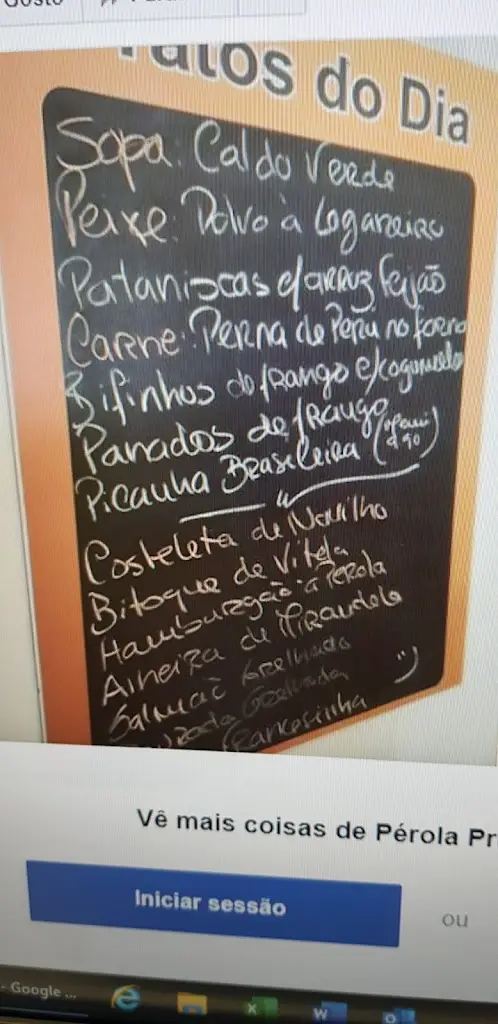 Gosto
Pratos do Dia
Sopa: Caldo Verde
Peixe: Polvo à Lagareiro
Pataniscas c/arroz feijão
Carne: Perna de Peru no forno
Bifinhos de frango c/cogumelos
Panados de frango
Picanha Brasileira
Costeleta de Novilho
Bitoque de Vitela
Hamburgão à Pérola
Alheira de Mirandela
Salmão Grelhado
Grelhada
Francesinha
Vê mais coisas de Pérola Pr
Iniciar sessão
ou
- Google ...